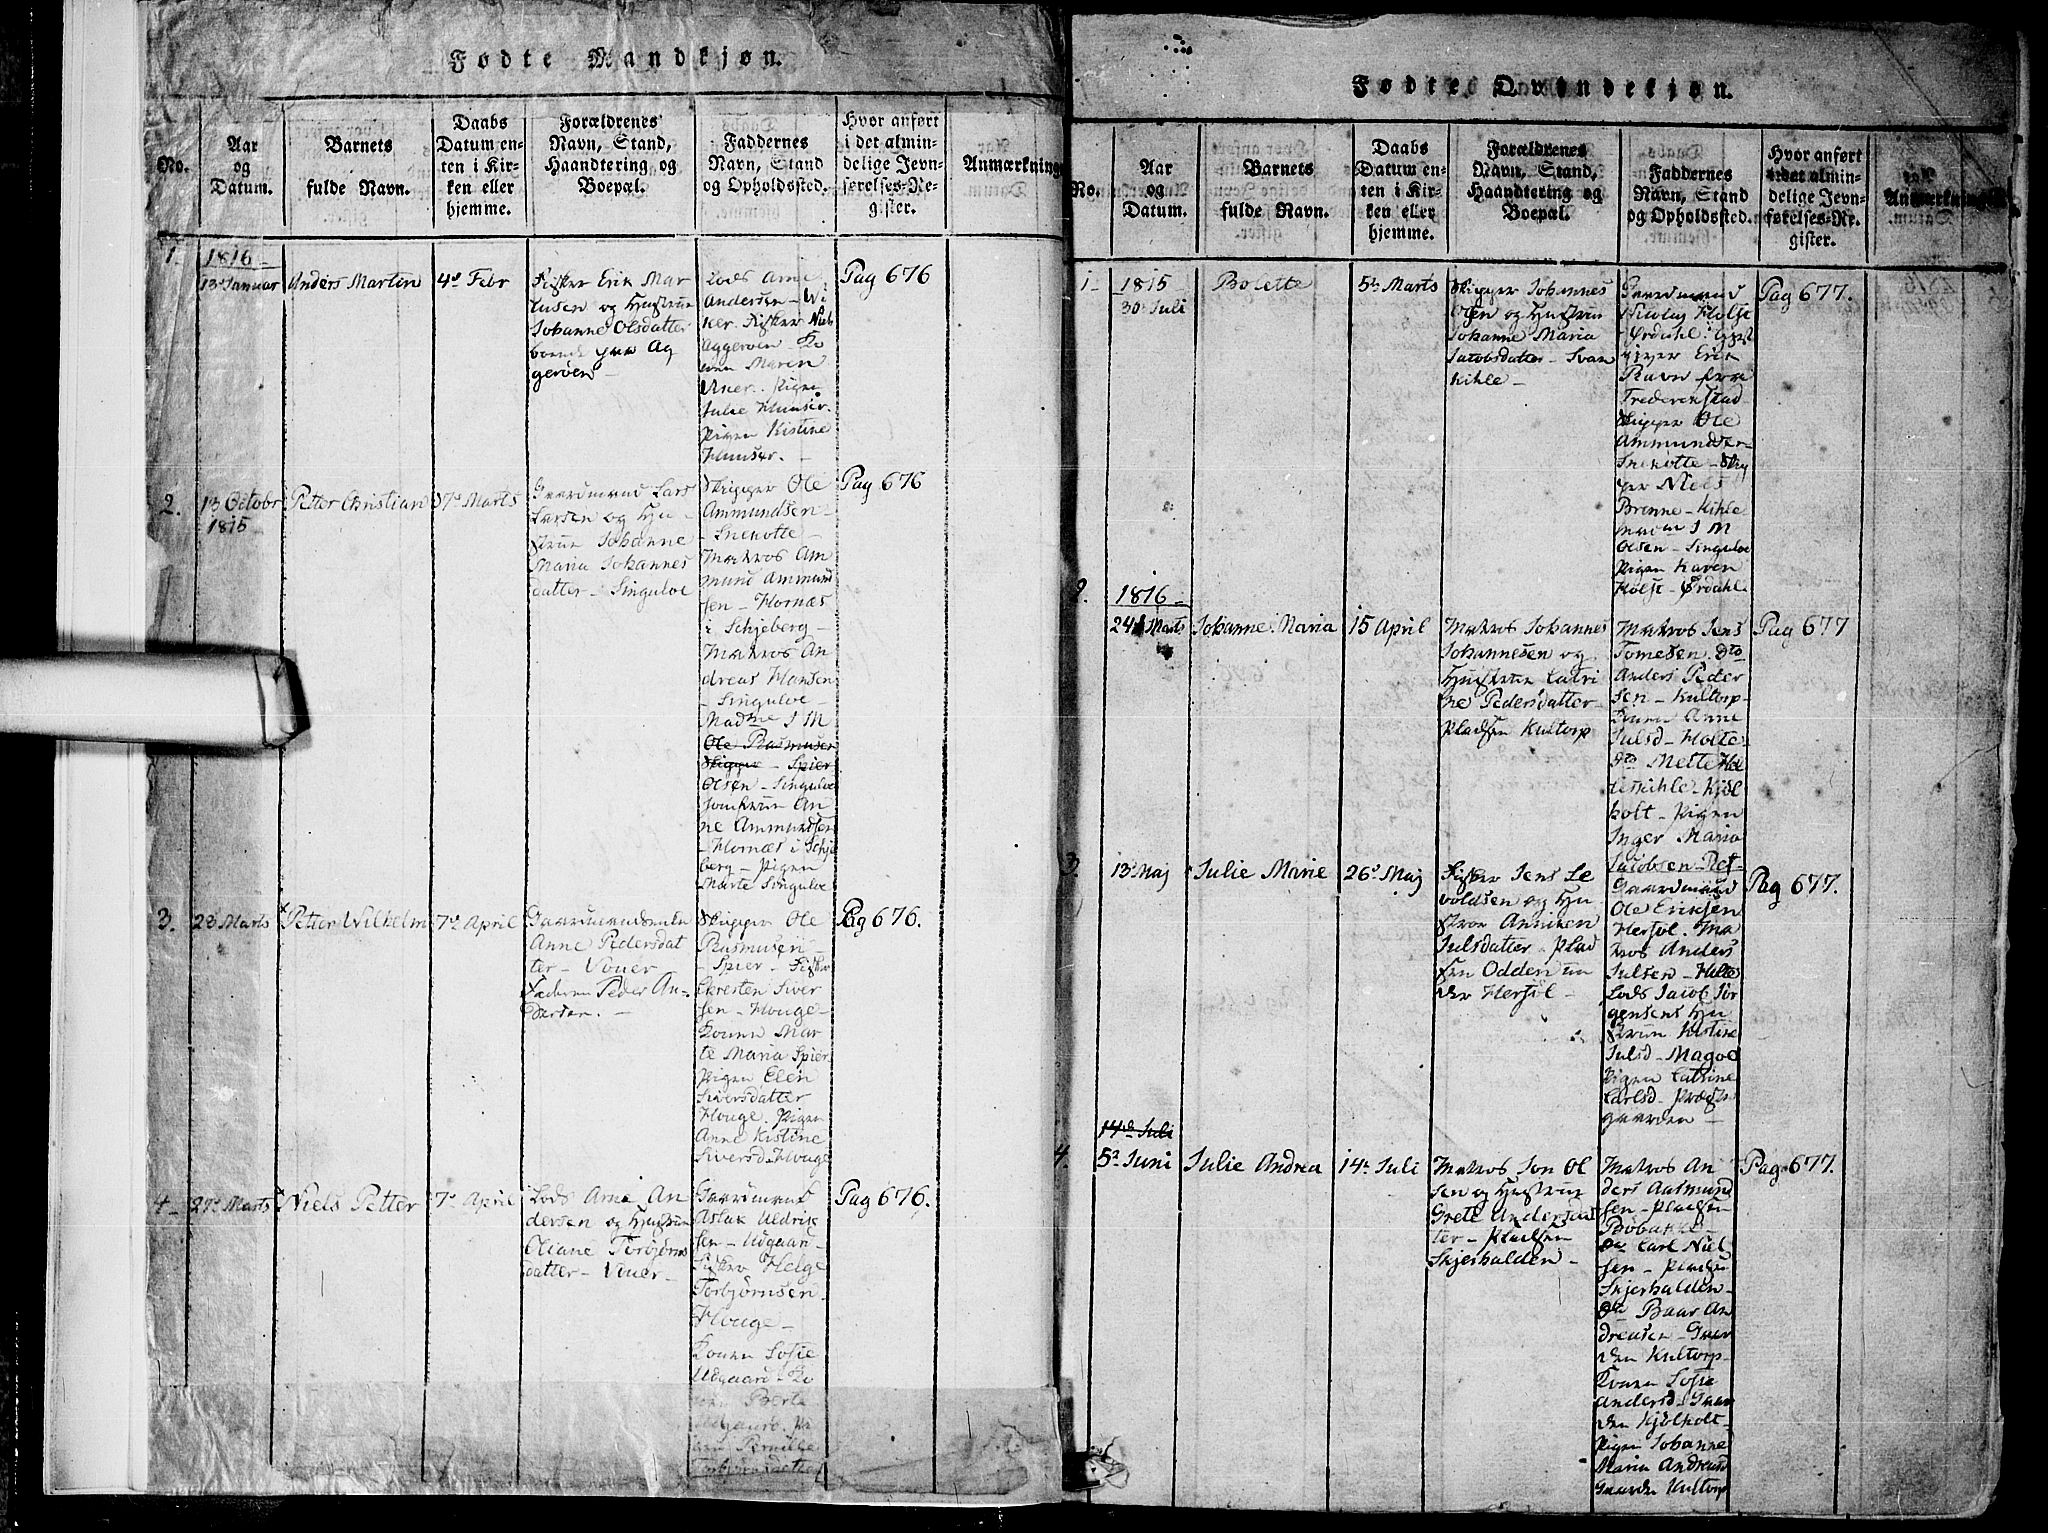 Fødte Mandkjøn.
No.
Aar
og
Datum.
Barnets
fulde Navn.
Daabs
Datum en-
ten i Kir-
ken eller
hjemme.
Forældrenes
Navn, Stand,
Haandtering og
Boepæl.
Faddernes
Navn, Stand
og Opholdssted.
Hvor anført
i det almin-
delige Jevn-
førelses-Re-
gister.
Anmærkning
1.
1816
13 Januar
Anders Martin
4de Febr
Fisker Erik Mar
tusen og Hustrue
Johanne Olsdatter
boende paa Ag
gerøen
Lods Arne
Andersen - Vi
ker. Fisker Niels
Aggerøen - Ko
nen Maren
Uner. Pigen
Julie Hunsør.
Pigen Kistine
Hunsør.
Pag 676
2.
13 Octobr
1815
Petter Christian
7de Marts
Gaardmand Lars
Larsen og Hu-
strue Johanne
Maria Johannes
datter - Singuløe
Skipper Ole
Ammundsen -
- Snekotte -
Matros Am
mund Ammund
sen - Hornæs
i Schjeberg -
Matros An
dreas Hansen
- Singuløe -
Madme I M
Ole Rasmusen
Skipper - Spier
Olsen - Singuløe
Jomfrue An
ne Ammundsen
- Hornæs i Schje
berg - Pigen
Marte Singuløe
Pag 676
3.
23 Marts
Petter Wilhelm
7de April
Gaardmandsenke
Anne Pedersdat
ter - Vouer
Faderen Peder An-
dersen. -
Skipper Ole
Rasmusen
- Spier - Fisker
Christen Siver
sen - Houge -
Konen Mar
te Maria Spier
Pigen Elen
Siversdatter
Houge. Pigen
Anne Kistine
Siversd. Houge
Pag 676.
4-
27de Marts
Niels Petter
7de April
Lods Arne An
dersen og Hustrue
Oliane Torbjørns
datter - Vouer -
Gaardmand
Aslak Uldrik
sen - Udgaard -
Fisker Helge
Torbjørnsen -
Houge -
Konen Sofie
Udgaard - Ko
nen Berte
Udgaard. Pi
gen Pernille
Torbjørnsdatter
Pag 676.
Fødte Qvindekjøn.
No.
Aar
og
Datum.
Barnets
fulde Navn.
Daabs
Datum en-
ten i Kir-
ken eller
hjemme.
Forældrenes
Navn, Stand,
Haandtering og
Boepæl.
Faddernes
Navn, Stand
og Opholdssted.
Hvor anført
i det almin-
delige Jevn-
førelses-Re-
gister.
Anmærkning
1-
1815
30 Juli
Bolette
5te Marts
Skipper Johannes
Olsen og Hustrue
Johanne Maria
Jacobsdatter - Svan
kihle -
Gaardmand
Nicolay Holst
- Ørdahl.
giver Erik
Ravn fra
Frederikstad
Skipper Ole
Ammundsen -
Snekotte - Skip
per Niels
Brenne - Kihle
Madm I M
Olsen - Singuløe
Pigen Karen
Holst - Ørdahl.
Pag 677.
2.
1816
24 Marts
Johanne Maria
15 April
Matros Johannes
Johannesen og
Hustrue Catri
ne Pedersdatter -
Pladsen Kultorp
Matros Jens
Tomesen. Dto
Anders Peder
sen - Kultorp -
Konen Anne
Julsd - Holte -
Dto Mette
Kihle - Kjøl
holt - Pigen
Inger Maria
Jacobsen -
Pag 677
3.
13 Maj
Julie Marie
26de Maj
Fisker Jens Le
voldsen og Hu
strue Anniken
Julsdatter - Plad
sen Odden un
der Hersøl -
Gaardmand
Ole Eriksen
Hersøl. Ma
tros Anders
Julsen - Holte
Lods Jacob Jør
gensens Hu
strue Kistine
Julsd - Magøe
Pigen Catrine
Carlsd - Præste
gaarden -
Pag 677.
14de Juli
4.
5te Juni
Julie Andrea
14de Juli
Matros Jon Ol
sen og Hustrue
Grete Andersdat
ter - Pladsen
Skjerhalden -
Matros An
ders Aasmund
sen - Pladsen
Bobakke -
Do Carl Niel
sen - Pladsen
Skjerhalden -
Do Baar An
dreasen - Gaar
den Kultorp -
Konen Sofie
Andersd - Gaar
den Kjølholt -
Pigen Johanne
Maria Andreasd
Gaarden Kultorp
Pag 677.